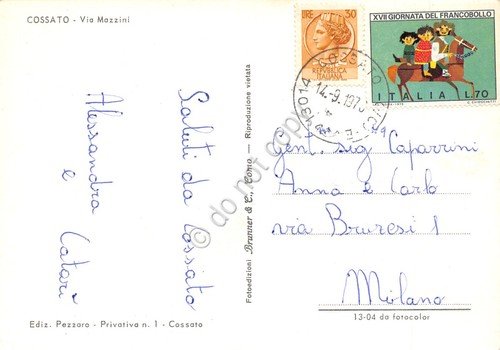 COSSATO - Via Mazzini
Saluti da Cossato
Alessandra
e
Catari
Ediz. Pezzaro - Privativa n. 1 - Cossato
Fotoedizioni Brunner & C., Como - Riproduzione vietata
LIRE 50
REPUBBLICA
ITALIANA
XVII GIORNATA DEL FRANCOBOLLO
ITALIA L.70
13014 COSSATO
14-9.197
Gent. sig Caparrini
Anna e Carlo
via Bruresi 1
Milano
13-04 da fotocolor
© do not copy